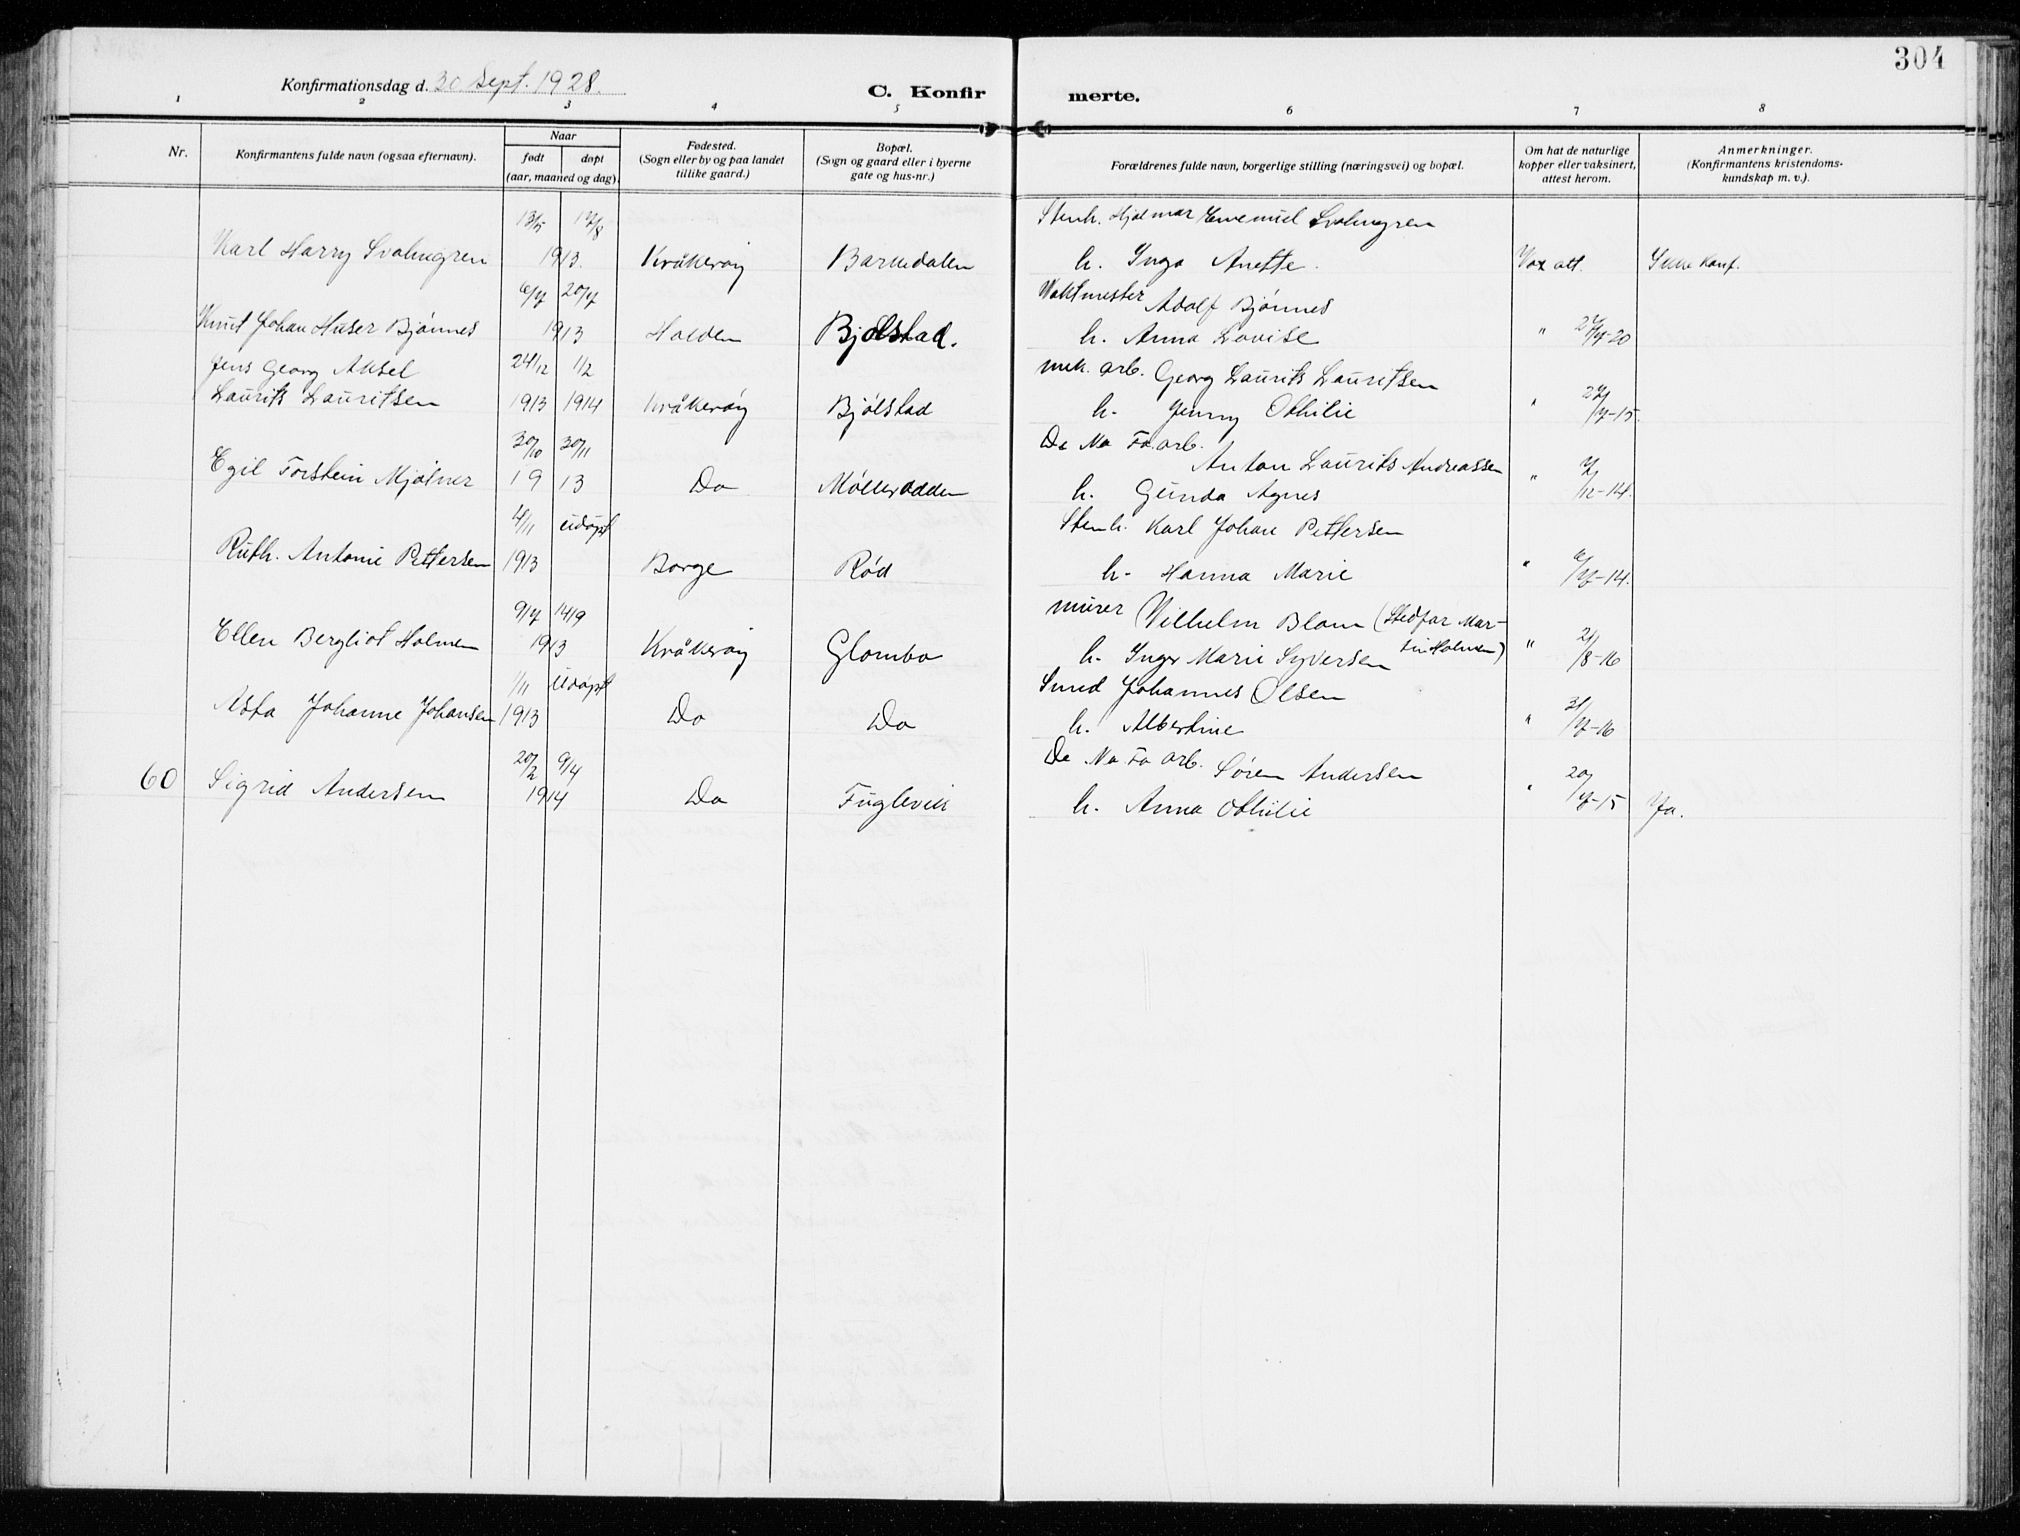 304
Konfirmationsdag d. 30 Sept. 1928.
C. Konfirmerte.
1 2 3 4 5 6 7 8
Nr.
Konfirmantens fulde navn (ogsaa efternavn).
Naar
født døpt
(aar, maaned og dag).
Fødested.
(Sogn eller by og paa landet
tillike gaard.)
Bopæl.
(Sogn og gaard eller i byerne
gate og hus-nr.)
Forældrenes fulde navn, borgerlige stilling (næringsvei) og bopæl.
Om hat de naturlige
kopper eller vaksinert,
attest herom.
Anmerkninger.
(Konfirmantens kristendoms-
kundskap m. v.).
13/5 17/8 Stenh. Hjalmar Svalmgren
Karl Harry Svalmgren 1913. Kråkerøy Barnedalen h. Inga Anette. Vax att. Ikke Konf.
6/7 20/7 Vaktmester Adolf Bjønnes
Knut Johan Huser Bjønnes 1913 Halden Bjølstad. h. Anna Lovise " 7-20
Jens Georg Aksel 24/12 1/2 mek. arb. Georg Laurits Lauritsen
Laurits Lauritsen 1913 1914 Kråkerøy Bjølstad h. Jenny Othilie " -15.
30/10 30/11 De No Fa. arb.
Egil Torstein Mjølner 1913 Do Møllerodden Anton Laurits Andreassen
h. Gunda Agnes " /12-14.
4/11 udøpt Stenh. Karl Johan Pettersen
Ruth. Antonie Pettersen 1913 Borge Rød h. Hanna Marie " 6/7-14.
9/7 14/9 murer Vilhelm Blom (Stedfar Mar-
Ellen Bergliot Holmen 1913 Kråkerøy Glombo h. Inga Marie Syversen tin Holmen) " 2/8-16
1/11 udøpt Smed Johannes Olsen
Asta Johanne Johansen 1913 Do Do h. Albertine " /7-16
20/2 9/4 De No Fa arb. Søren Andersen
60 Sigrid Andersen 1914 Do Fuglevik h. Anna Othilie " 20/7-15 Ja.